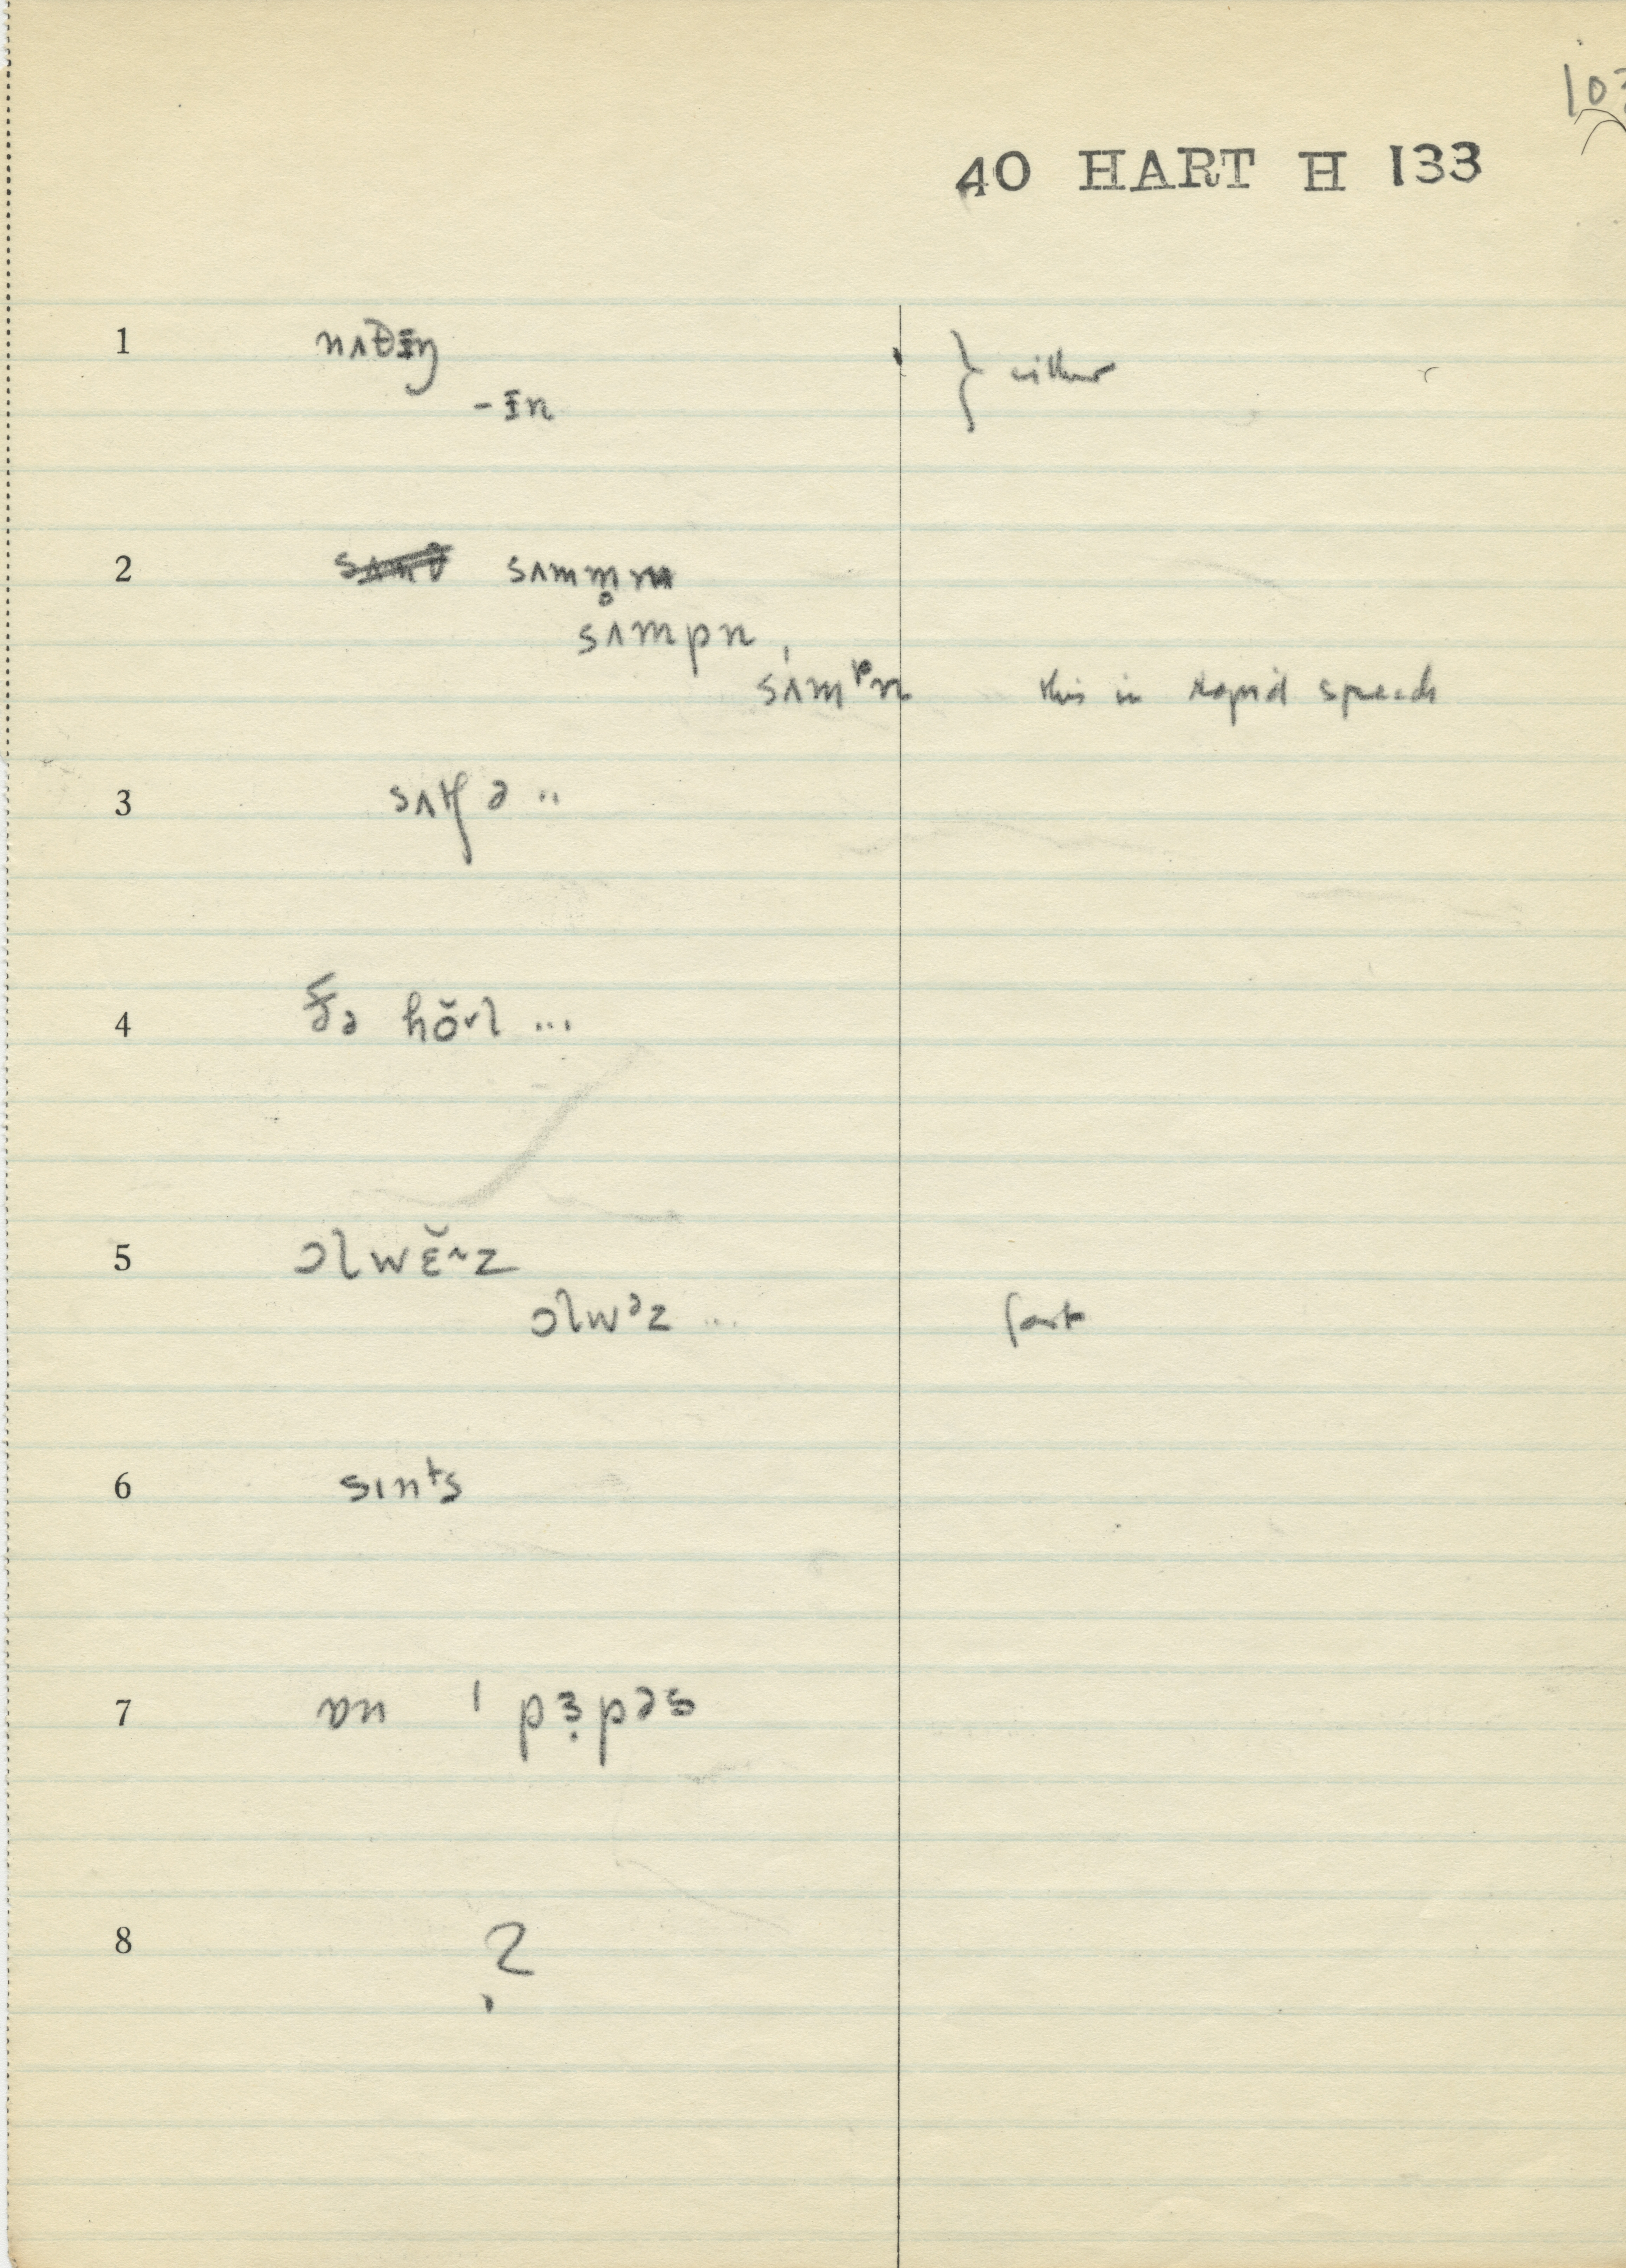 40 HART H 133
1 nʌθɪ̵ŋ } either
-ɪ̵n
2 sʌmm̥m
sʌmpn
sʌ́mᵖn this in rapid speech
3 sʌtʃ ə ..
4 ðə hŏ˅l ...
5 ɔlwɛ̆˄z
ɔlwᵊz ... fast
6 sɪnᵗs
7 ɒn ˈ pɜ̣pəs
8 ?